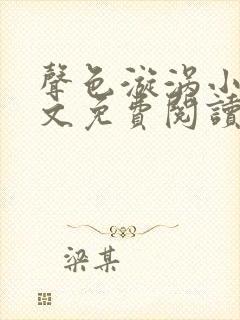 聲色漩涡小
文免費閱讀
梁某